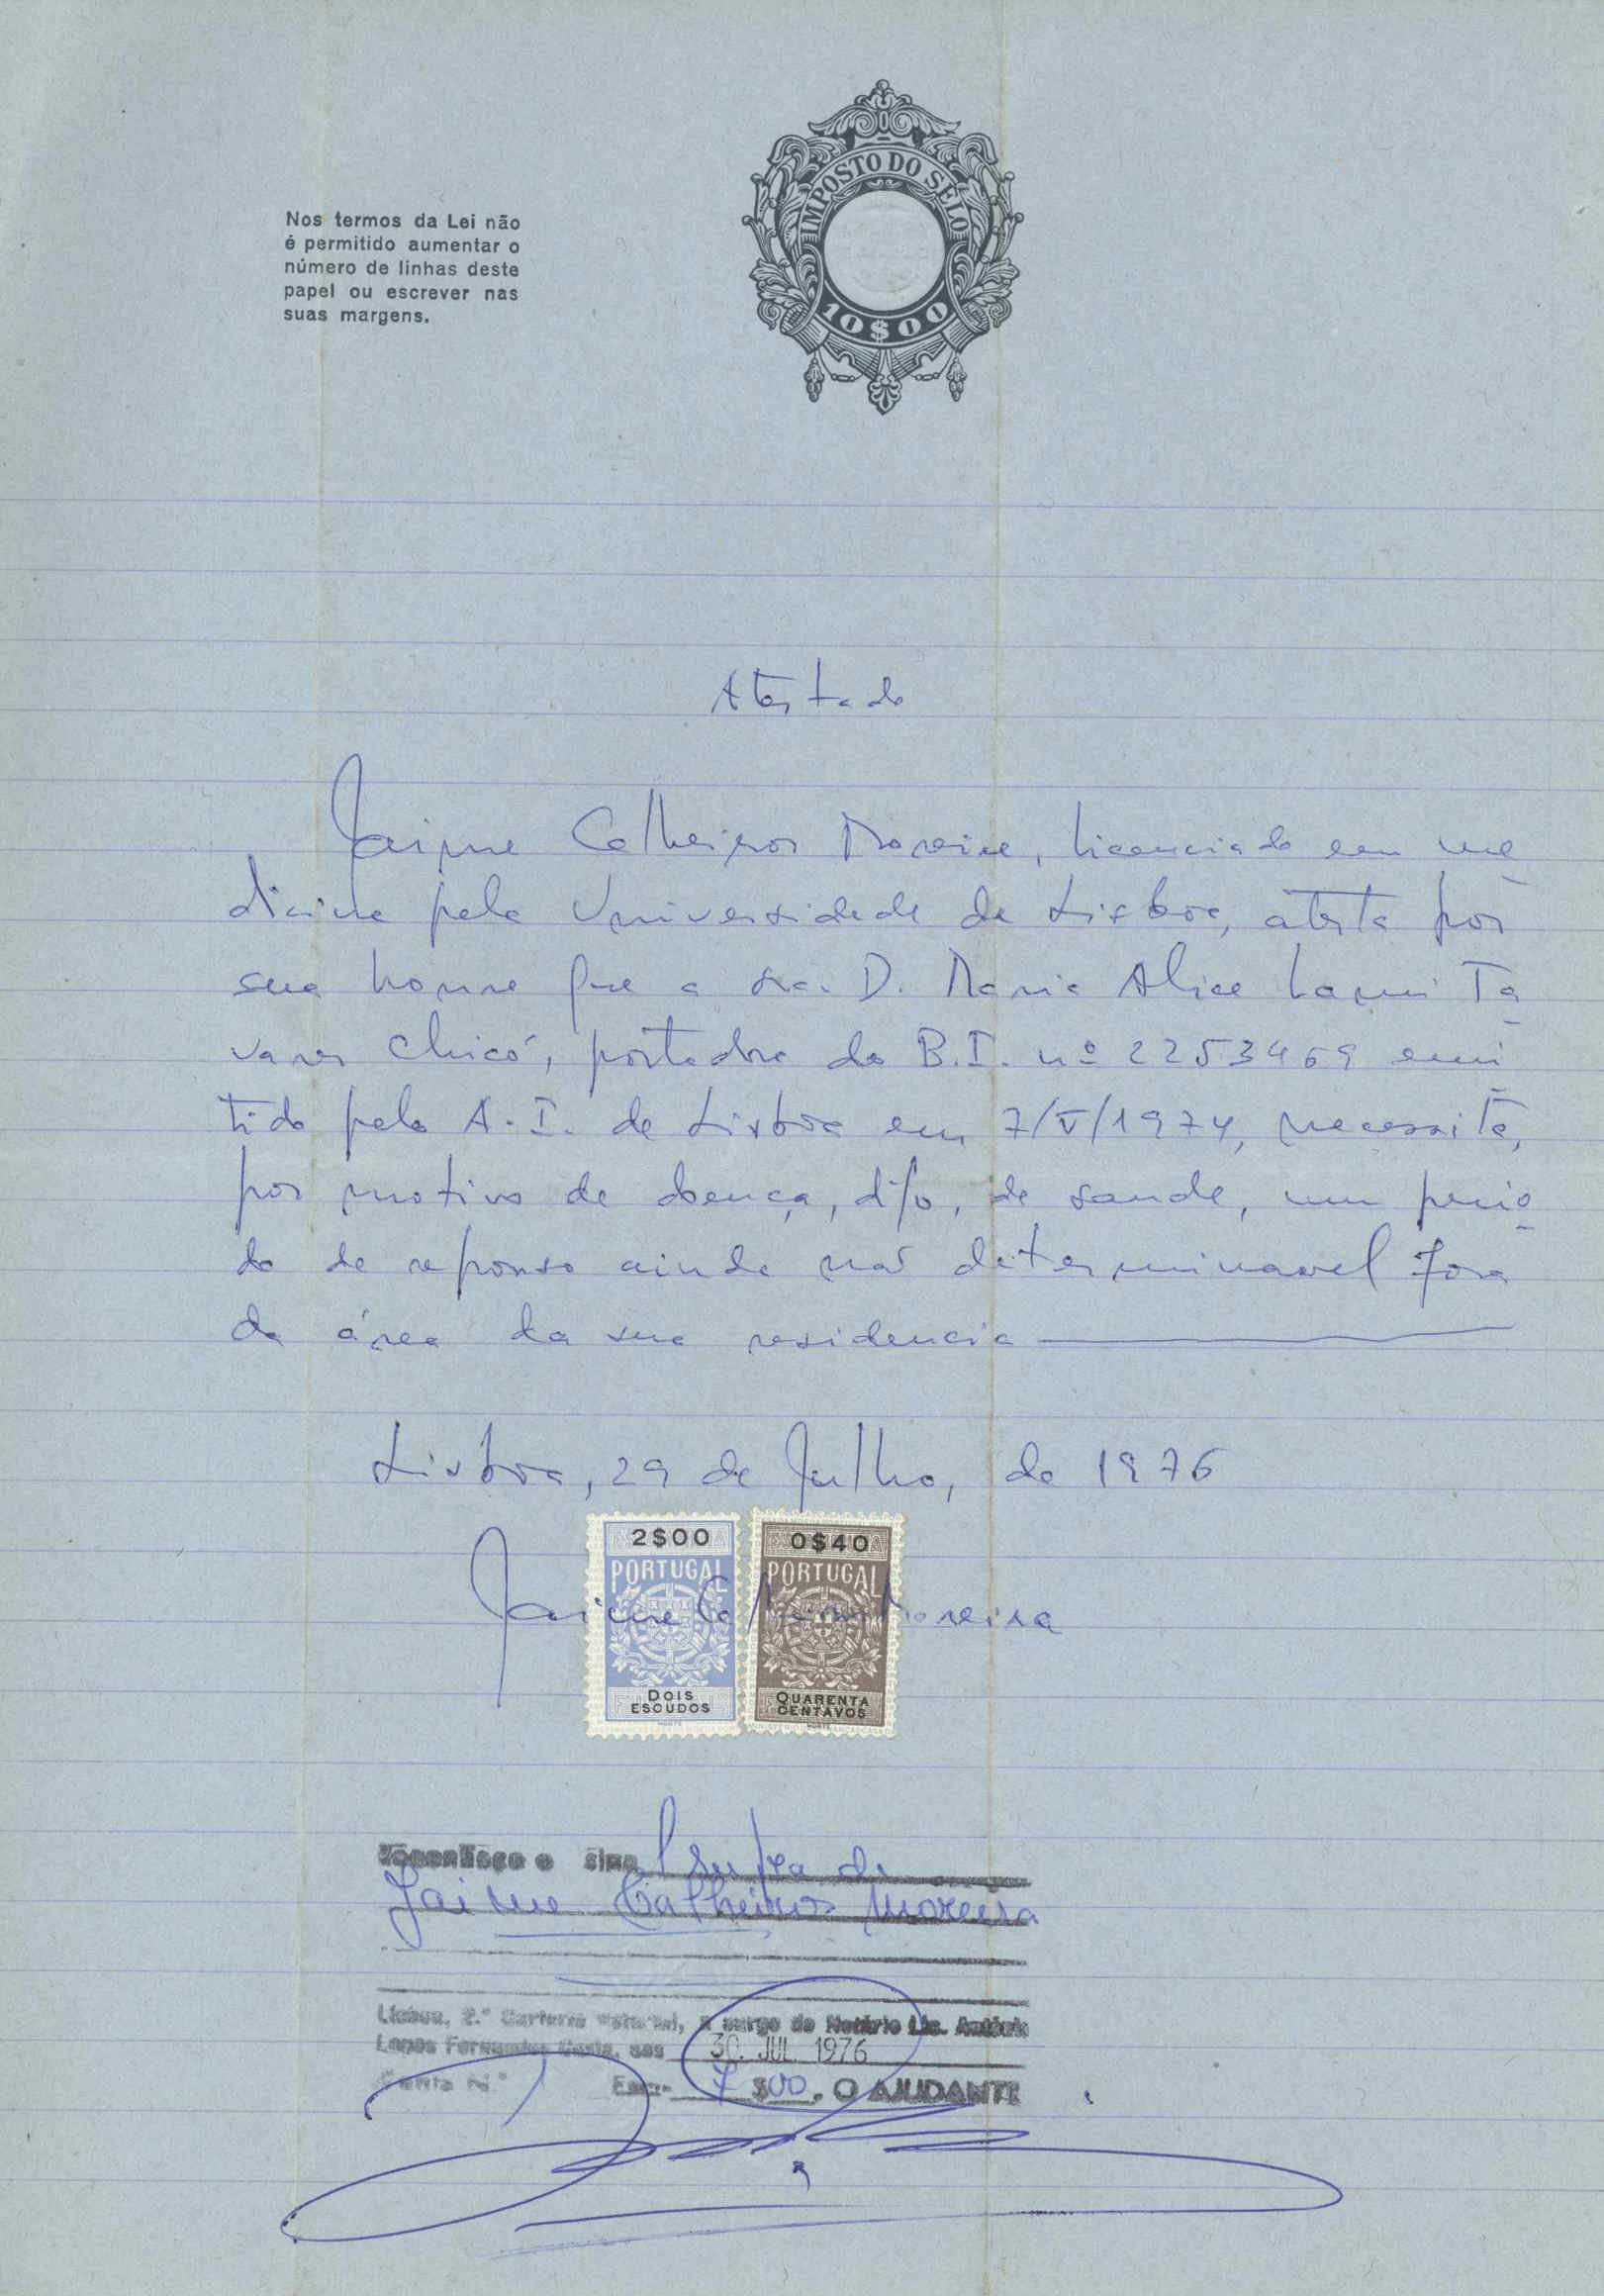 Nos termos da Lei não
é permitido aumentar o
número de linhas deste
papel ou escrever nas
suas margens.
IMPOSTO DO SELO
10$00
Atestado
Jaime Calheiros Moreira, licenciado em me
dicina pela Universidade de Lisboa, atesta por
sua honra que a sra. D. Maria Alice Lami Ta
vares Chicó, portadora do B.I. nº 2253469 emi
tido pelo A.I. de Lisboa em 7/V/1974, necessita,
por motivo de doença, digo, de saude, um perio
do de repouso ainda não determinavel fora
da área da sua residencia
Lisboa, 29 de Julho, de 1976
2$00
PORTUGAL
DOIS
ESCUDOS
0$40
PORTUGAL
QUARENTA
CENTAVOS
Jaime Calheiros Moreira
Reconheço o sinal supra de
Jaime Calheiros Moreira
Lisboa, 2.º Cartório Notarial, a cargo do Notário Lic. António
Lopes Fernandes Costa, aos 30. JUL. 1976
Conta N.º Esc.- 7$00. O AJUDANTE